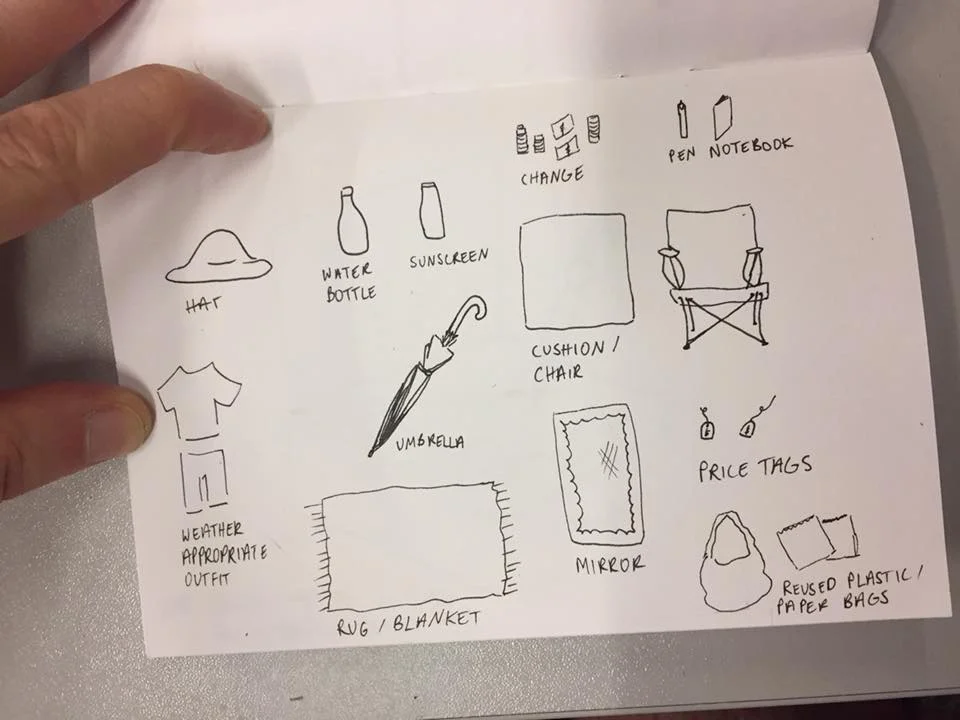 CHANGE
PEN NOTEBOOK
HAT
WATER
BOTTLE
SUNSCREEN
CUSHION /
CHAIR
UMBRELLA
PRICE TAGS
WEATHER
APPROPRIATE
OUTFIT
RUG / BLANKET
MIRROR
REUSED PLASTIC /
PAPER BAGS